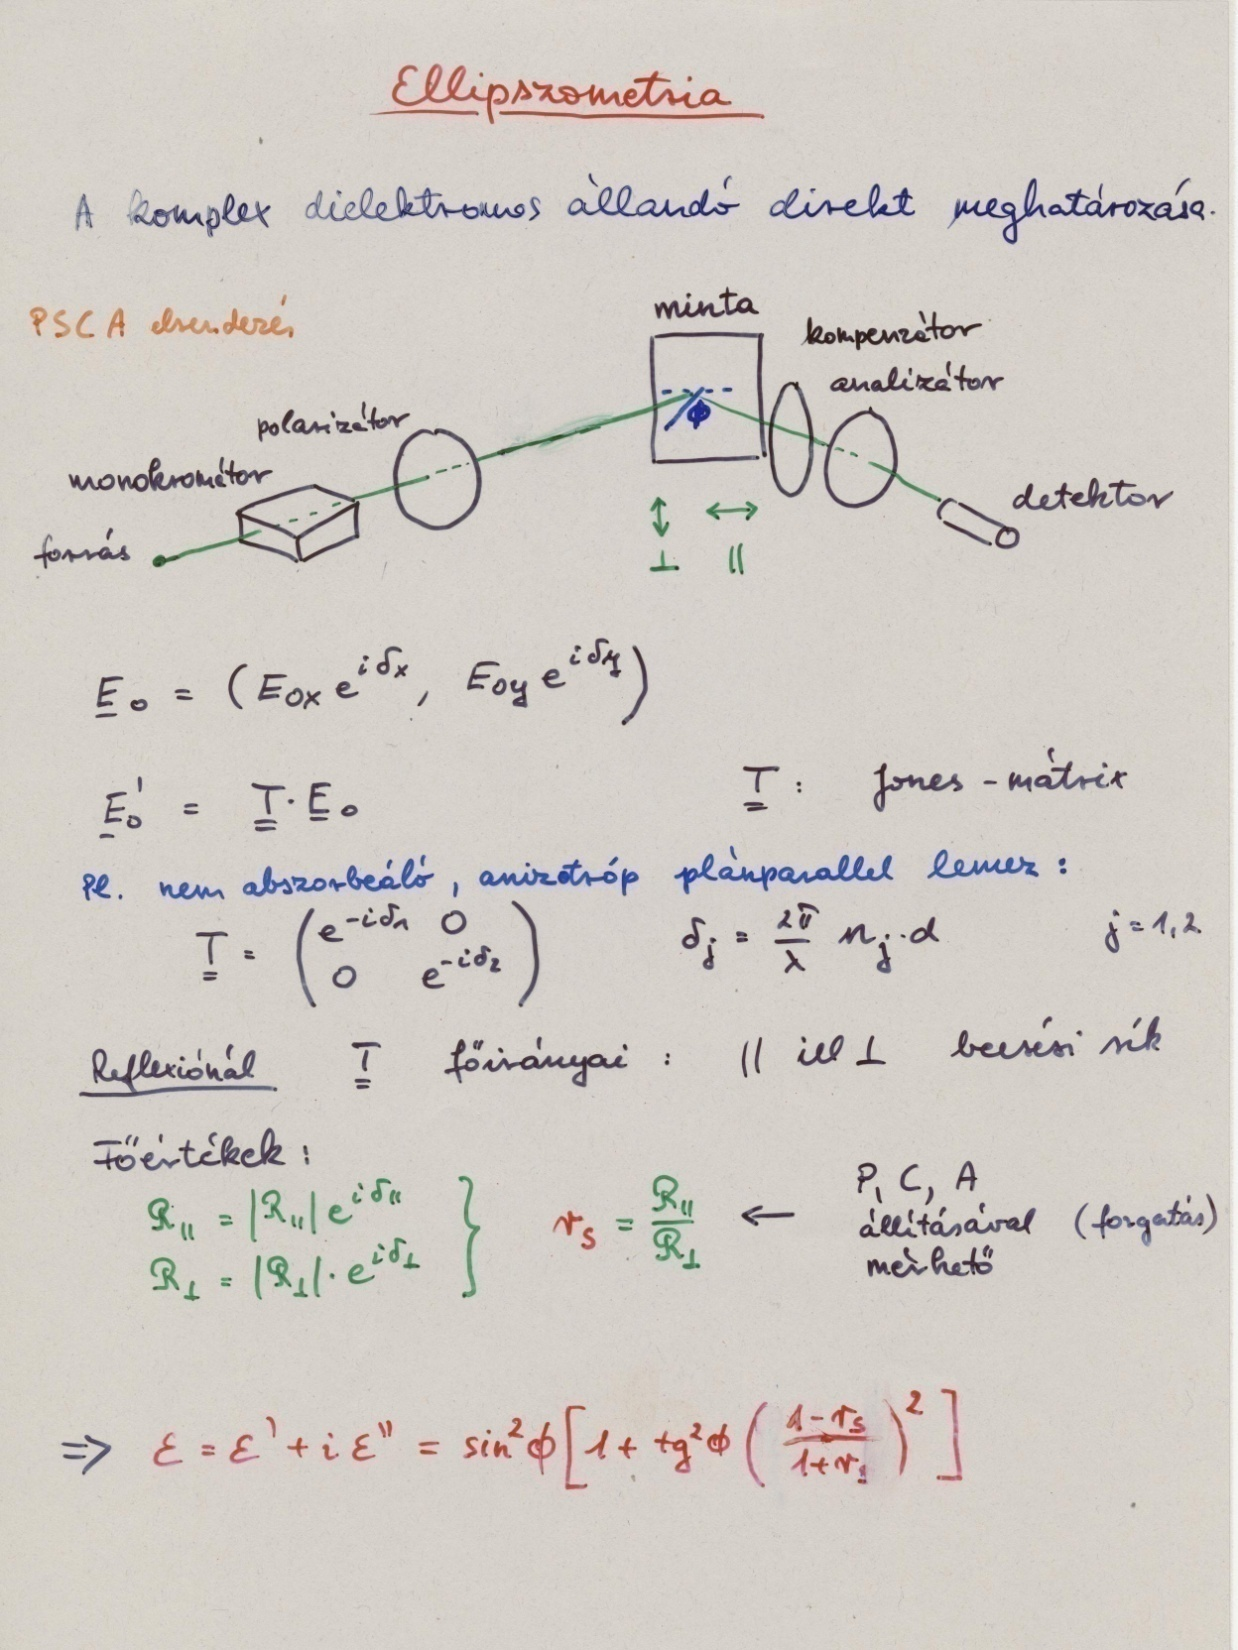 Ellipszometria
A komplex dielektromos állandó direkt meghatározása.
PSCA elrendezés
minta
kompenzátor
analizátor
ϕ
polarizátor
monokromátor
detektor
forrás
⊥ ∥
E₀ = (E₀ₓ e^{iδₓ}, E₀y e^{iδy})
E₀' = T · E₀ T : Jones-mátrix
Pl. nem abszorbeáló, anizotróp plánparallel lemez :
T = ( e^{-iδ₁} 0 ; 0 e^{-iδ₂} ) δⱼ = 2π/λ nⱼ · d j = 1,2
Reflexiónál T főirányai : ∥ ill ⊥ beesési sík
Főértékek :
R∥ = |R∥| e^{iδ∥}
R⊥ = |R⊥| · e^{iδ⊥}
r_s = R∥/R⊥ ←
P, C, A
állításával (forgatás)
mérhető
⇒ ε = ε' + i ε'' = sin²ϕ [ 1 + tg²ϕ ( (1 - r_s)/(1 + r_s) )² ]